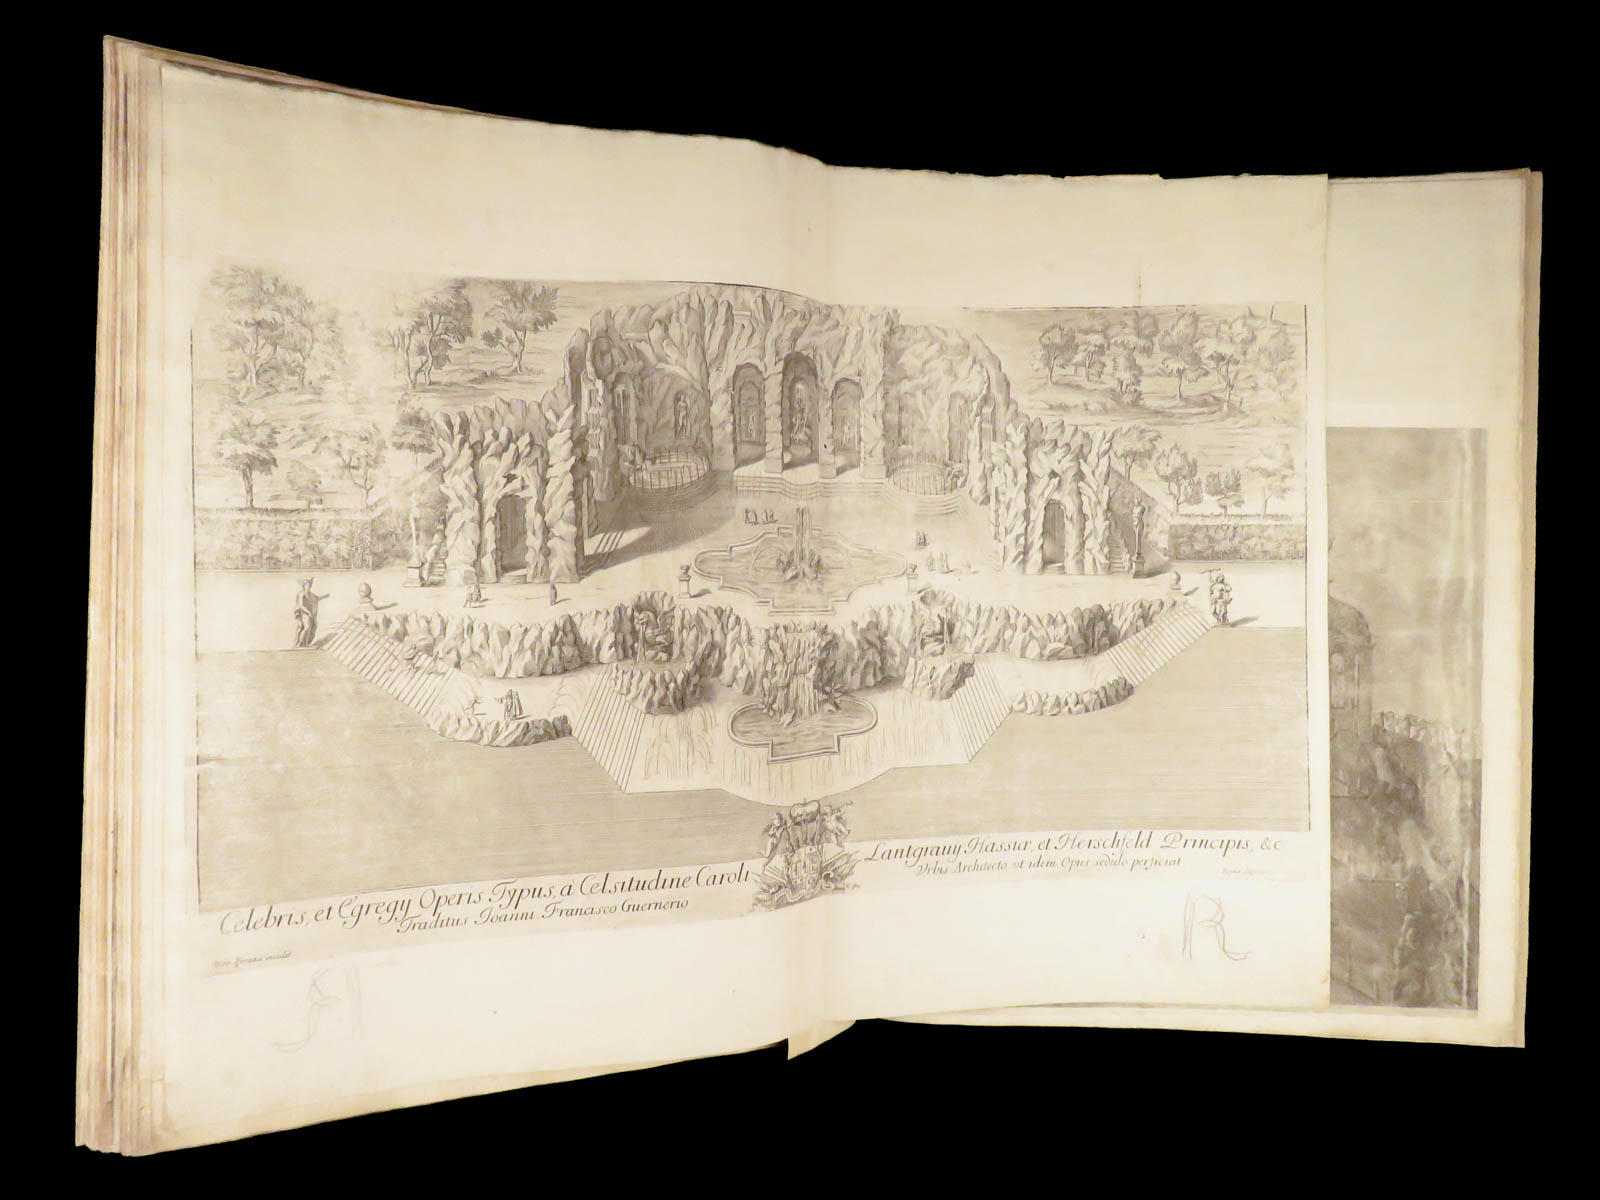 Celebris, et Egregy Operis Typus, à Celsitudine Caroli Lantgravy Hassiæ, et Herschfeld Principis, &c
Traditus Ioanni Francisco Guernerio Vrbis Architecto vt idem Opus sedulo perficiat
R